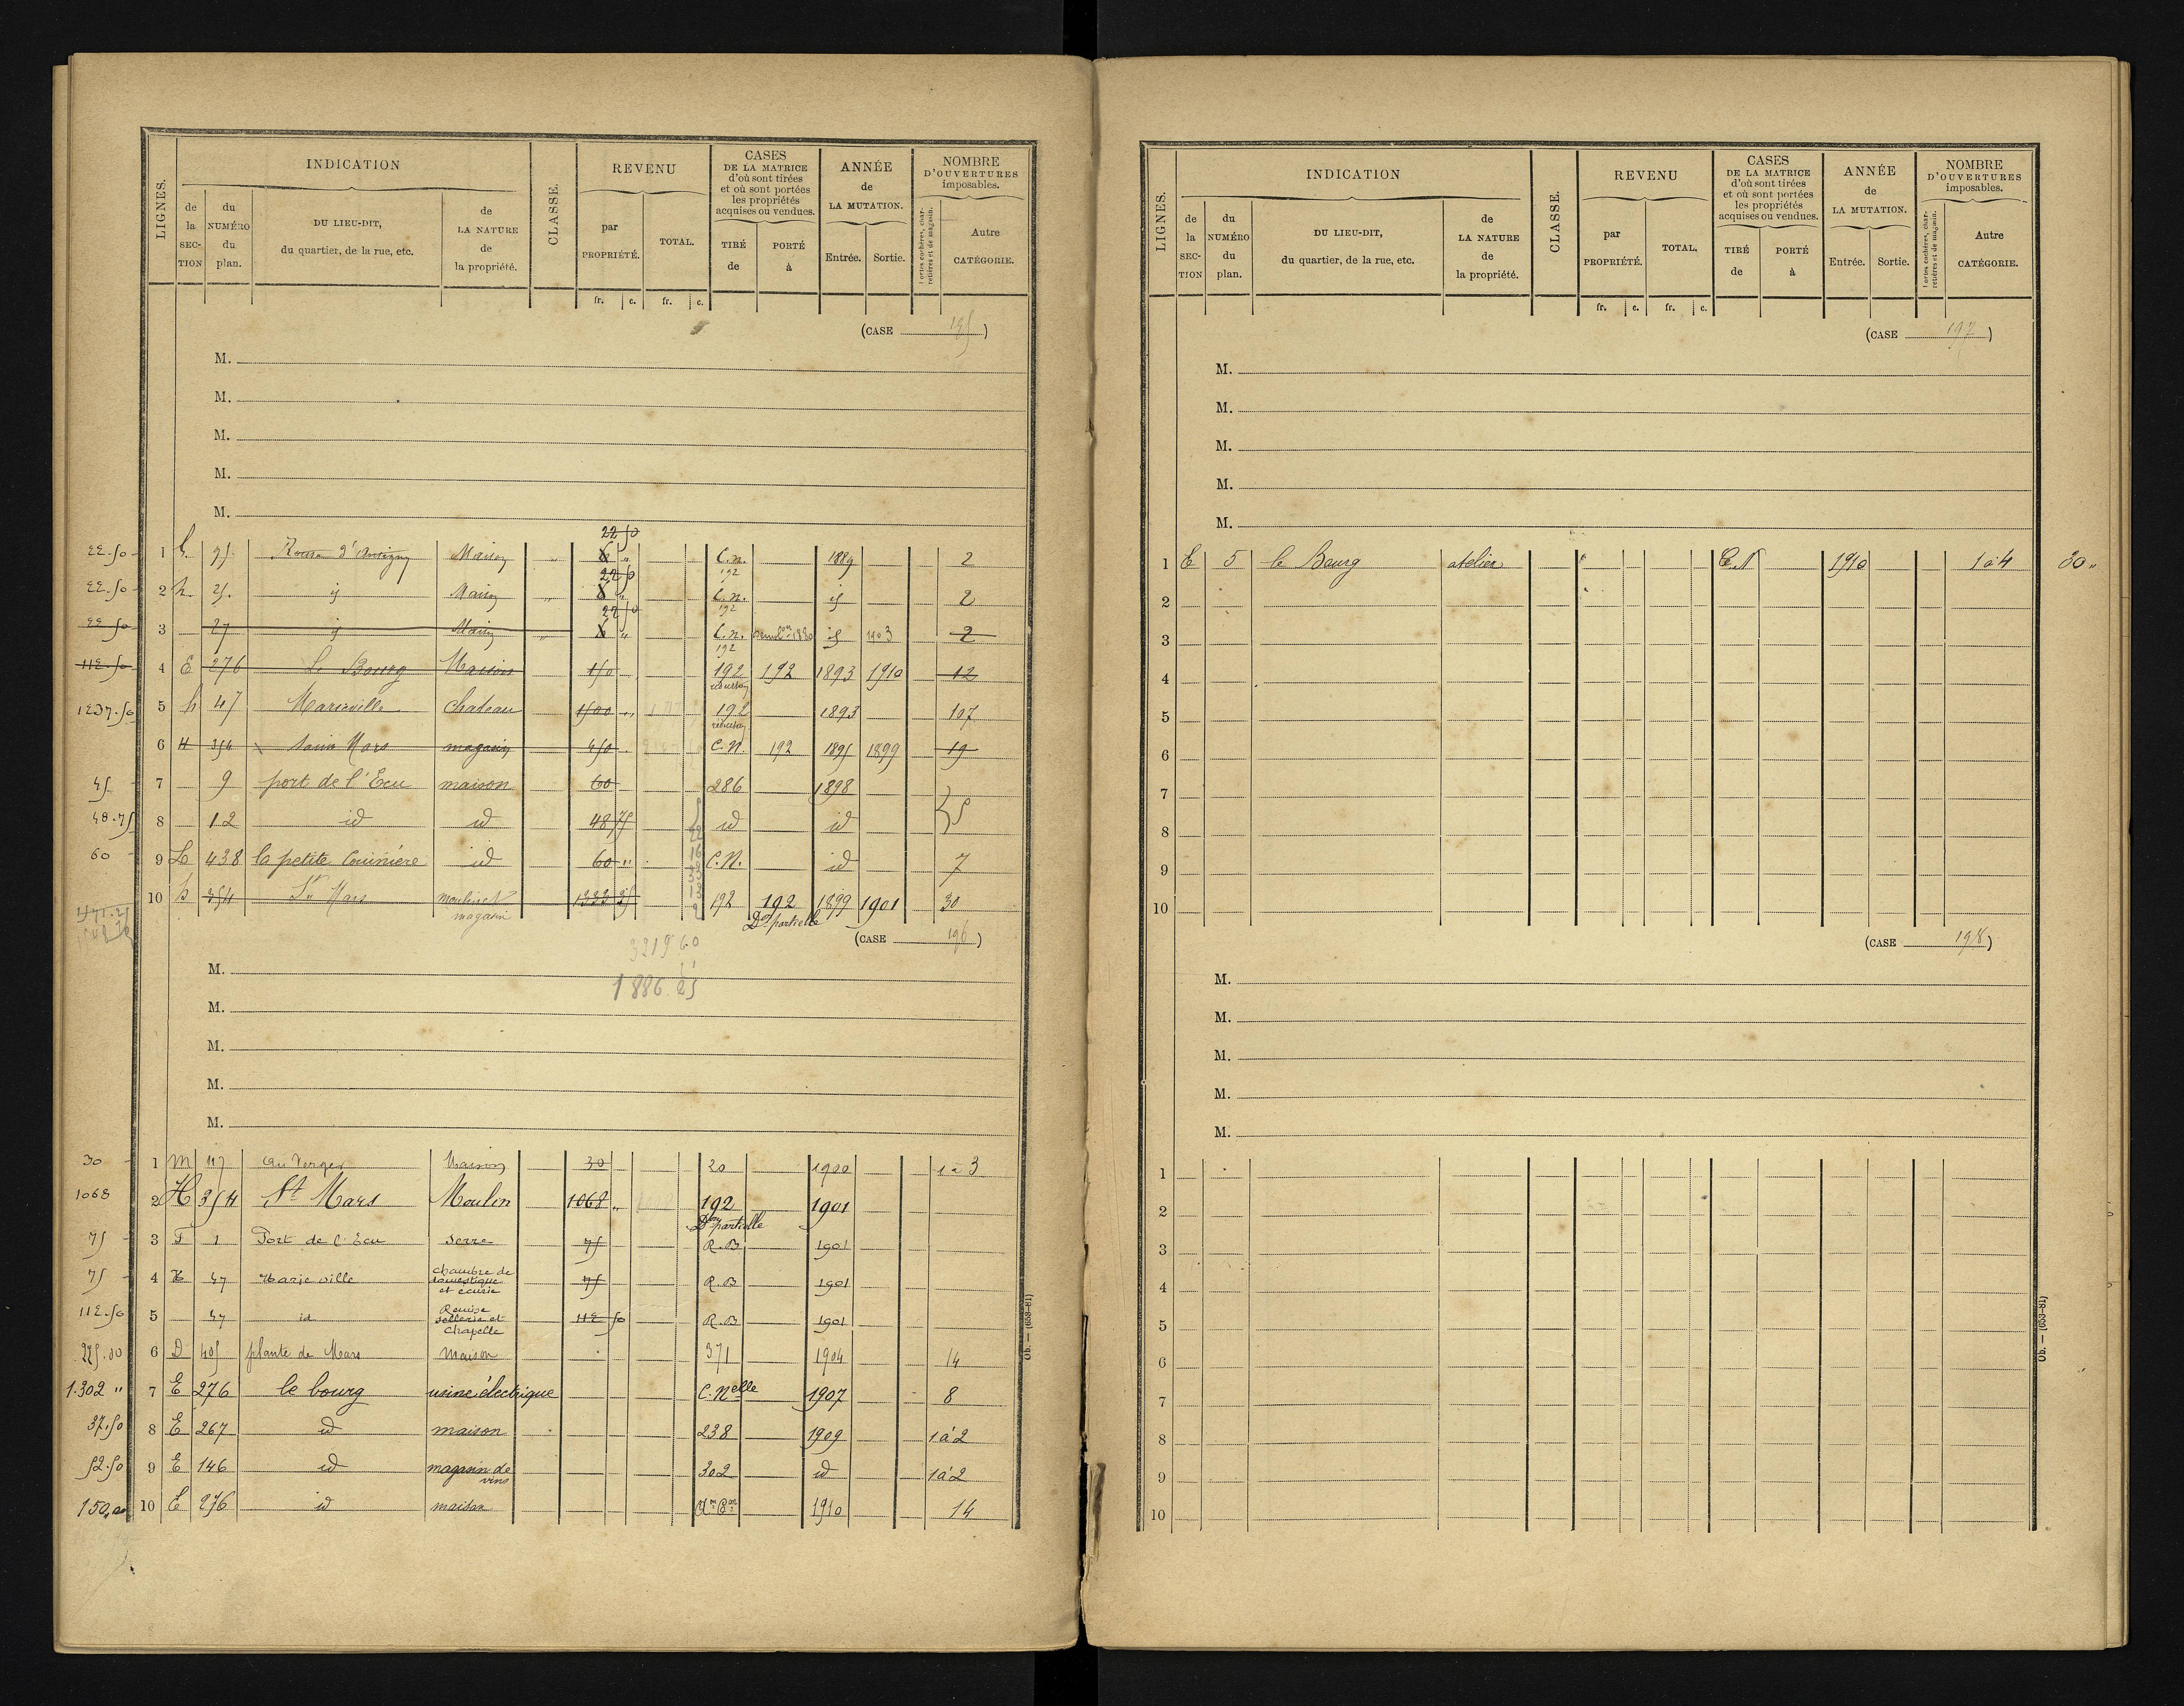 LIGNES.
INDICATION
de la SECTION
du NUMÉRO du plan.
DU LIEU-DIT, du quartier, de la rue, etc.
de LA NATURE de la propriété.
CLASSE.
REVENU
par PROPRIÉTÉ.
TOTAL.
fr. c. fr. c.
CASES DE LA MATRICE d'où sont tirées et où sont portées les propriétés acquises ou vendues.
TIRÉ de
PORTÉ à
ANNÉE de LA MUTATION.
Entrée. Sortie.
NOMBRE D'OUVERTURES imposables.
Portes cochères, charretières et de magasin.
Autre CATÉGORIE.
(CASE 195)
M.
M.
M.
M.
M.
22 50
22.50 1 h 25 Maison " 8 " C.n. 1889 2
192
22 50
22.50 2 h. 25. id Maison " 8 " C.n. id 2
192
22 50
22 50 3 27 id Maison " 8 " C.n. id 1903 2
192
112.50 4 E 276 Le Bourg Maison 150 192 192 1893 1910 12
1237.50 5 h 47 Marieville Chateau 1500 " 192 1893 107
6 H 354 Saint Mars magasin 450 C.N. 192 1895 1899 19
45 7 9 port de l'Ecu maison 60 286 1898
48.75 8 12 id id 48 75 id id 5
60 9 438 la petite id 60 " C.N. id 7
10 h 354 St Mars 1333 25 192 192 1899 1901 30
magasin Don partielle
(CASE 196)
3219 60
1886.25
M.
M.
M.
M.
M.
30 1 M 47 au Verger Maison 30 20 1900 1 à 3
1068 2 H 354 St Mars Moulin 1068 " 192 1901
Don partielle
75 3 F 1 Port de l'Ecu Serre 75 R.B 1901
75 4 H 47 Marie ville chambre de domestique et écurie 75 R.B 1901
112.50 5 47 id Remise sellerie et Chapelle 112 50 R.B 1901
225.00 6 D 405 plante de Mars Maison 371 1904 14
1.302 " 7 E 276 le bourg usine électrique C.Nelle 1907 8
37.50 8 E 267 id maison 238 1909 1 à 2
52.50 9 E 146 id magasin de vins 302 id 1 à 2
150,00 10 E 276 id maison 1910 14
Ob. — (653-81)
LIGNES.
INDICATION
de la SECTION
du NUMÉRO du plan.
DU LIEU-DIT, du quartier, de la rue, etc.
de LA NATURE de la propriété.
CLASSE.
REVENU
par PROPRIÉTÉ.
TOTAL.
fr. c. fr. c.
CASES DE LA MATRICE d'où sont tirées et où sont portées les propriétés acquises ou vendues.
TIRÉ de
PORTÉ à
ANNÉE de LA MUTATION.
Entrée. Sortie.
NOMBRE D'OUVERTURES imposables.
Portes cochères, charretières et de magasin.
Autre CATÉGORIE.
(CASE 197)
M.
M.
M.
M.
M.
1 E 5 le Bourg atelier C.N 1910 1 à 4 30 "
2
3
4
5
6
7
8
9
10
(CASE 198)
M.
M.
M.
M.
M.
1
2
3
4
5
6
7
8
9
10
Ob. — (653-81)